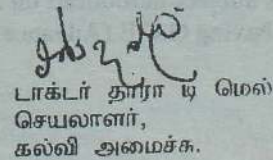 டாக்டர் தாரா டி மெல்
செயலாளர்,
கல்வி அமைச்சு.